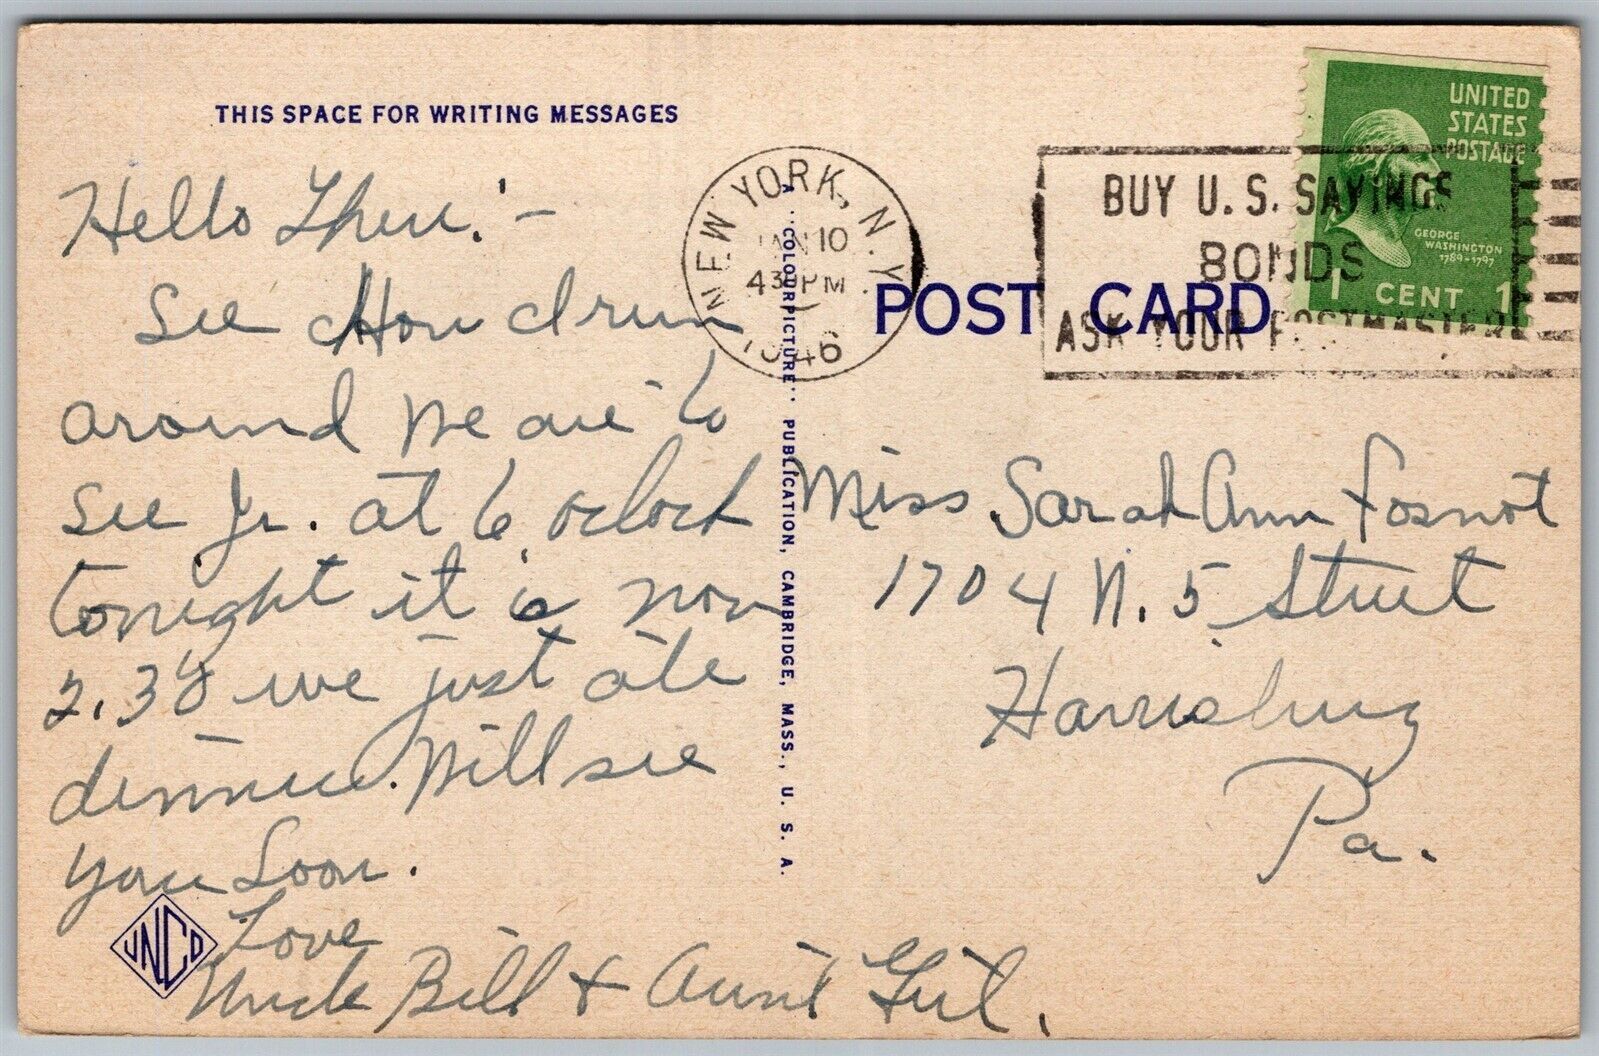 THIS SPACE FOR WRITING MESSAGES
Hello There! -
See How I run
around We are to
see Jr. at 6 oclock
tonight it is now
2.30 we just ate
dinner. Will see
you Soon.
Love
Uncle Bill & Aunt Gert.
JNCO
A "COLOURPICTURE" PUBLICATION, CAMBRIDGE, MASS., U. S. A.
NEW YORK, N.Y.
JAN 10
430 PM
1946
BUY U.S. SAVINGS
BONDS
ASK YOUR POSTMASTER
UNITED
STATES
POSTAGE
GEORGE
WASHINGTON
1789-1797
1 CENT 1
POST CARD
Miss Sarah Ann Fosnot
1704 N. 5 Street
Harrisburg
Pa.